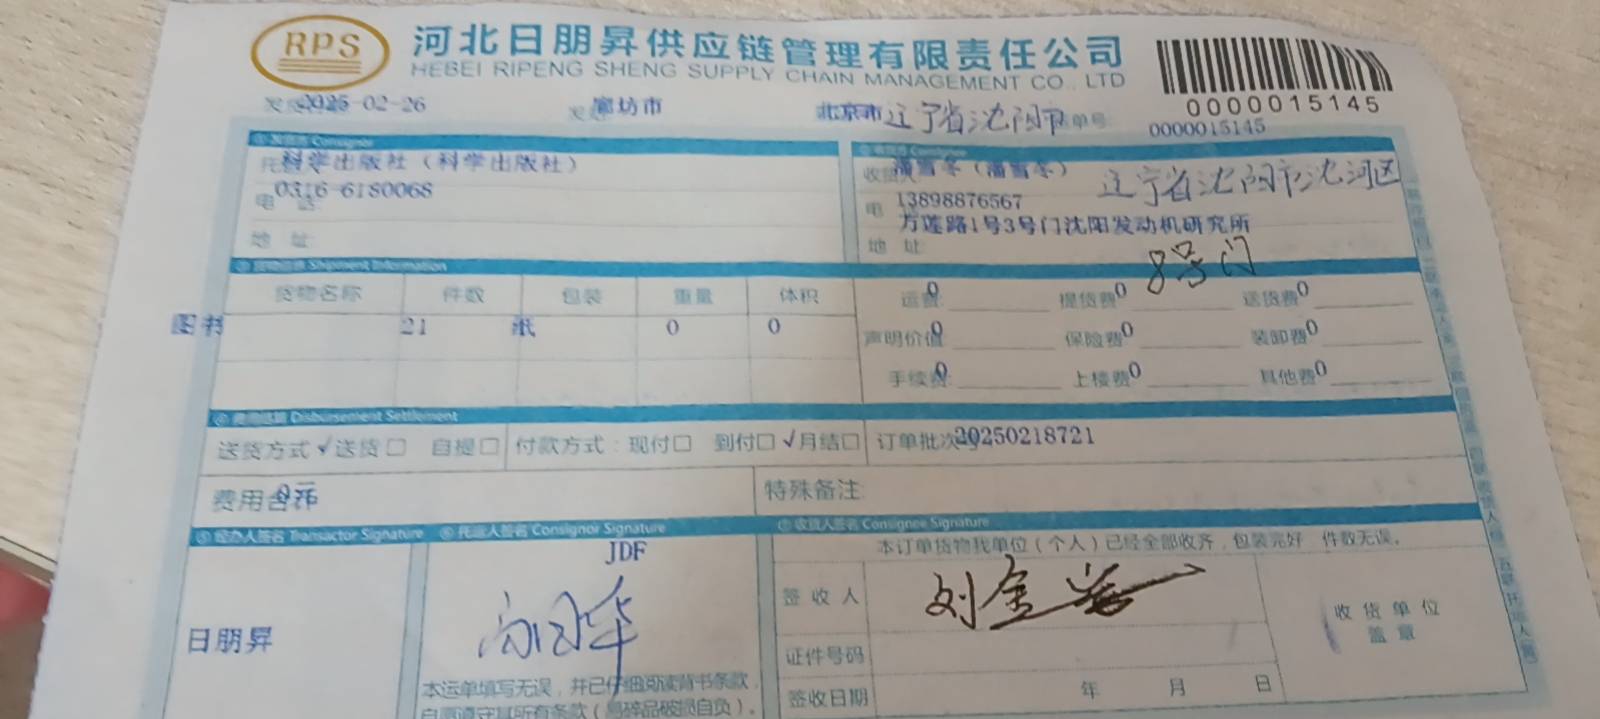 RPS
河北日朋昇供应链管理有限责任公司
HEBEI RIPENG SHENG SUPPLY CHAIN MANAGEMENT CO., LTD
0000015145
2025-02-26 廊坊市 北京市 辽宁省沈阳市 单号 0000015145
Consignor
科学出版社（科学出版社） 收货人 潘雪冬（潘雪冬） 辽宁省沈阳市沈河区
电 话 0316-6180068 电 13898876567
地 址 地 址 万莲路1号3号门沈阳发动机研究所
8号门
Shipment Information
货物名称 件数 包装 重量 体积 运费 0 提货费 0 送货费 0
图书 21 纸 0 0 声明价值 0 保险费 0 装卸费 0
手续费 0 上楼费 0 其他费 0
Disbursement Settlement
送货方式 √送货□ 自提□ 付款方式：现付□ 到付□ √月结□ 订单批次号 20250218721
费用合计 0元 特殊备注:
⑤ 经办人签名 Transactor Signature ⑥ 托运人签名 Consignor Signature ⑦ 收货人签名 Consignee Signature
JDF 本订单货物我单位（个人）已经全部收齐，包装完好 件数无误。
日朋昇 签收人 刘金 收货单位
盖章
证件号码
本运单填写无误，并已仔细阅读背书条款， 签收日期 年 月 日
自愿遵守其所有条款（易碎品破损自负）。